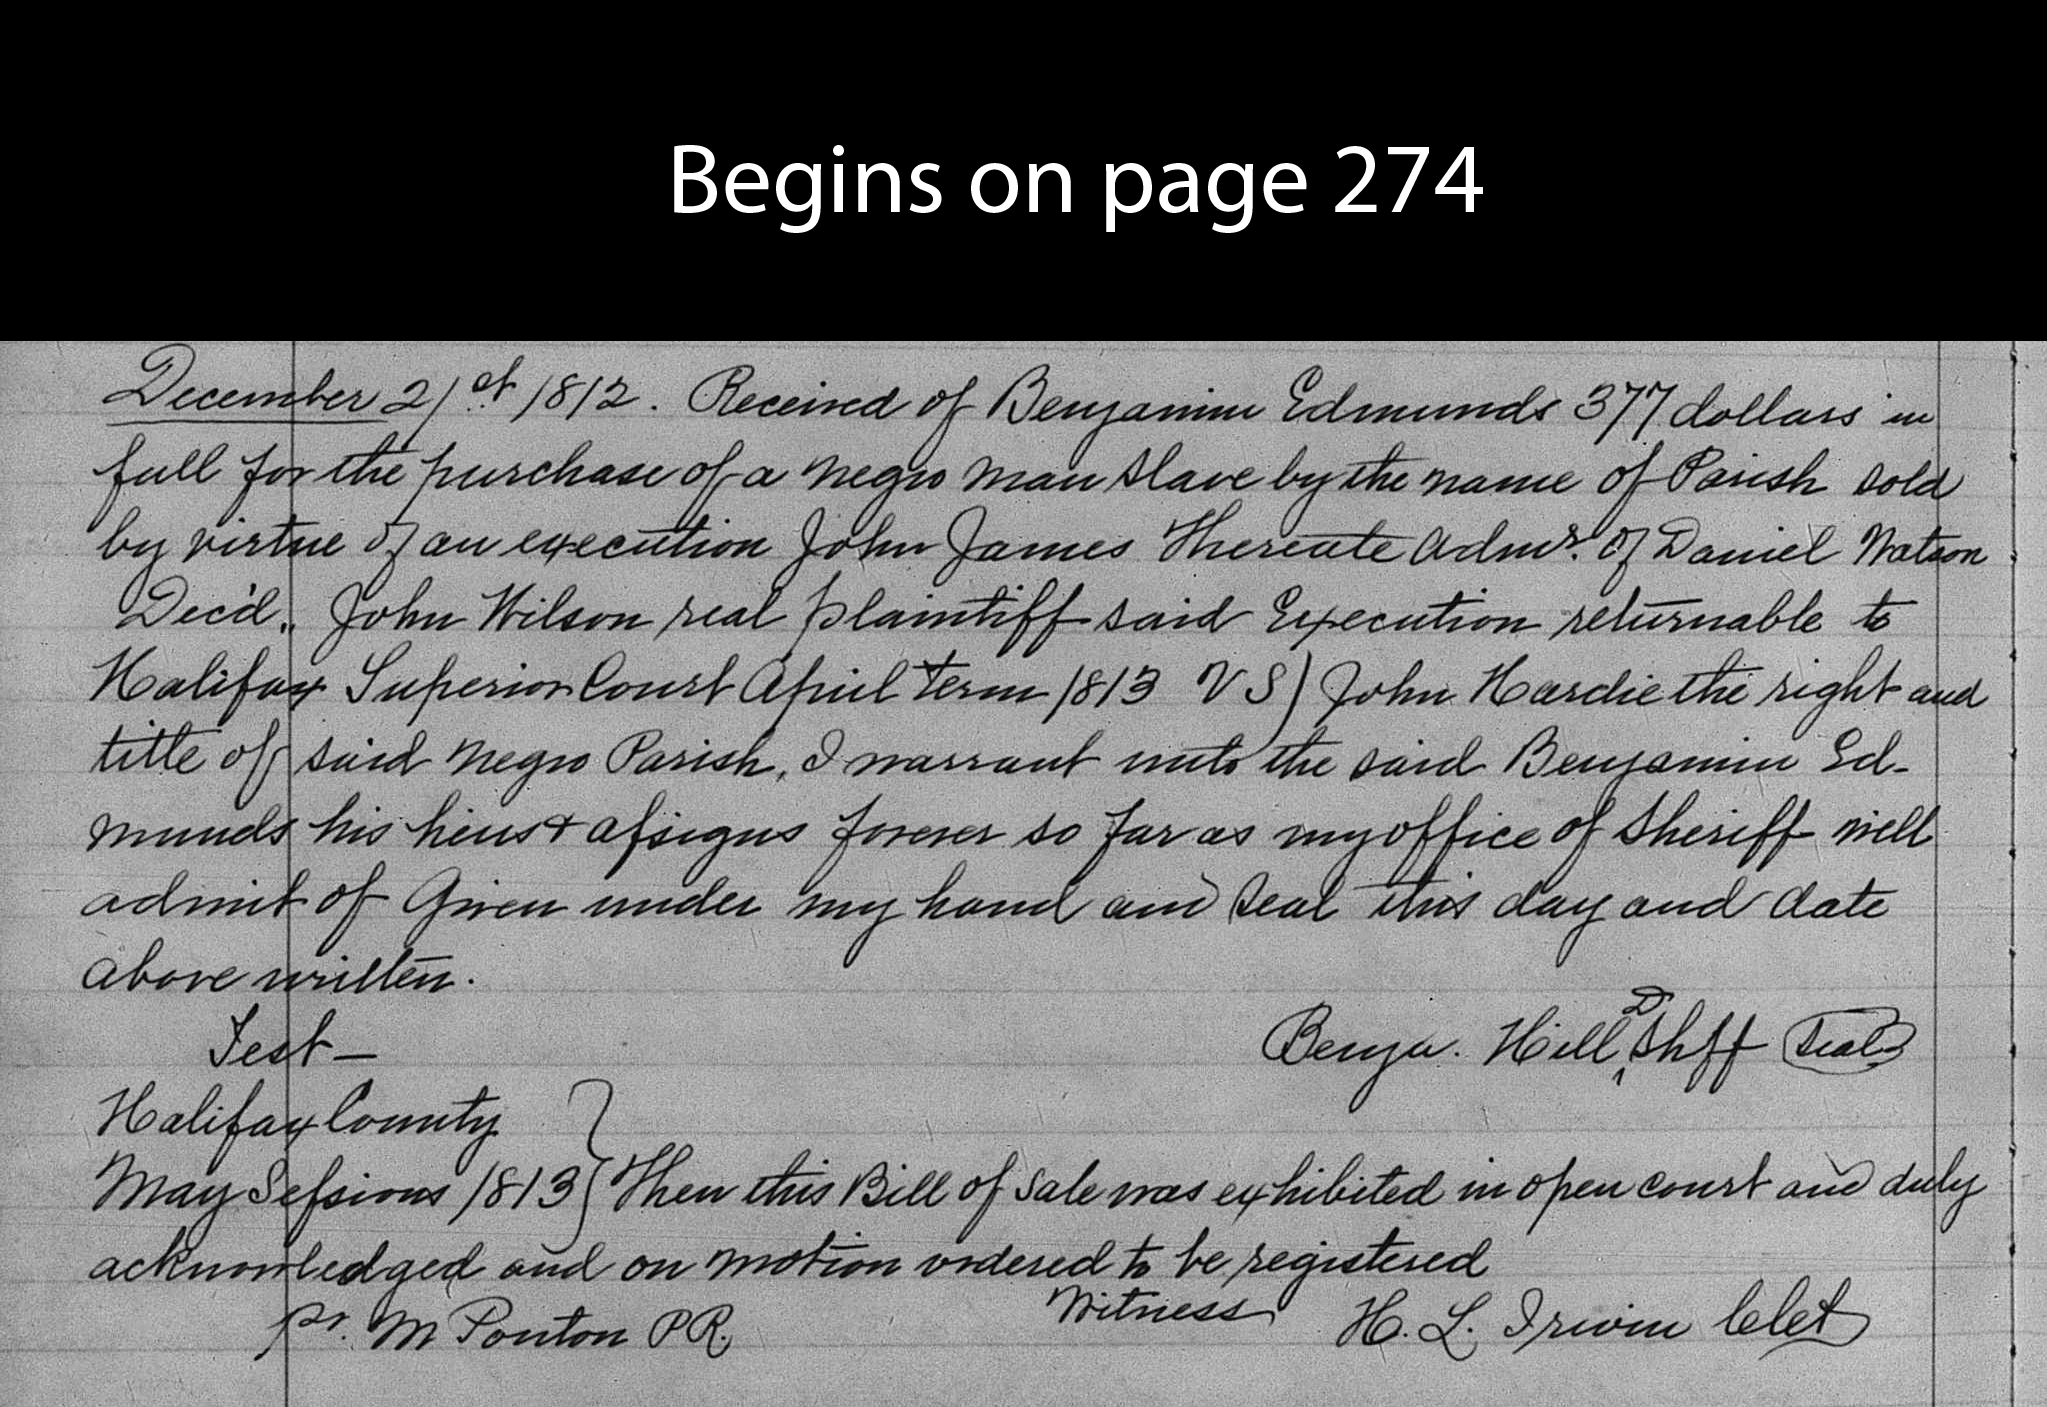 Begins on page 274
December 21st 1812. Received of Benjamin Edmunds 377 dollars in
full for the purchase of a negro man slave by the name of Parish sold
by virtue of an execution John James Thereate Admr. of Daniel Watson
Dec'd., John Wilson real plaintiff said Execution returnable to
Halifax Superior Court April Term 1813 VS) John Hardie the right and
title of said negro Parish, I warrant unto the said Benjamin Ed-
munds his heirs & assigns forever so far as my office of Sheriff will
admit of Given under my hand and seal this day and date
above written.
Test — Benja. Hill, D Shff Seal
Halifax County
May Sessions 1813 } Then this Bill of Sale was exhibited in open court and duly
acknowledged and on motion ordered to be registered
pr. M Ponton PR. Witness H. L. Irwin